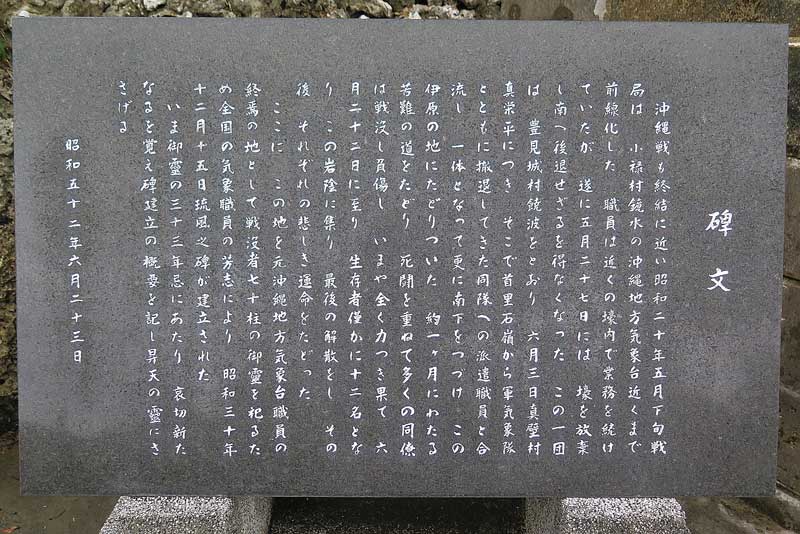 碑文
沖縄戦も終結に近い昭和二十年五月下旬戦
局は 小禄村鏡水の沖縄地方気象台近くまで
前線化した 職員は近くの壕内で業務を続け
ていたが 遂に五月二十七日には 壕を放棄
し南へ後退せざるを得なくなった この一団
は 豊見城村饒波をとおり 六月三日真壁村
真栄平につき そこで首里石嶺から軍気象隊
とともに撤退してきた同隊への派遣職員と合
流し 一体となって更に南下をつづけ この
伊原の地にたどりついた 約一ヶ月にわたる
苦難の道をたどり 死闘を重ねて多くの同僚
は戦没し負傷し いまや全く力つき果て 六
月二十二日に至り 生存者僅かに十二名とな
り この岩陰に集り 最後の解散をし その
後 それぞれの悲しき運命をたどった
ここに この地を元沖縄地方気象台職員の
終焉の地として戦没者七十柱の御霊を祀るた
め全国の気象職員の芳志により 昭和三十年
十二月十五日琉風之碑が建立された
いま御霊の三十三年忌にあたり 哀切新た
なるを覚え碑建立の概要を記し昇天の霊にさ
さげる
昭和五十二年六月二十三日